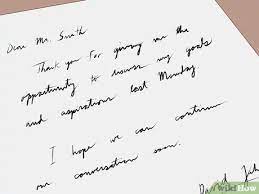 Dear Mr. Smith
Thank you for giving me the
opportunity to discuss my goals
and aspirations last Monday
I hope we can continue
our conversation soon.
David
wikiHow